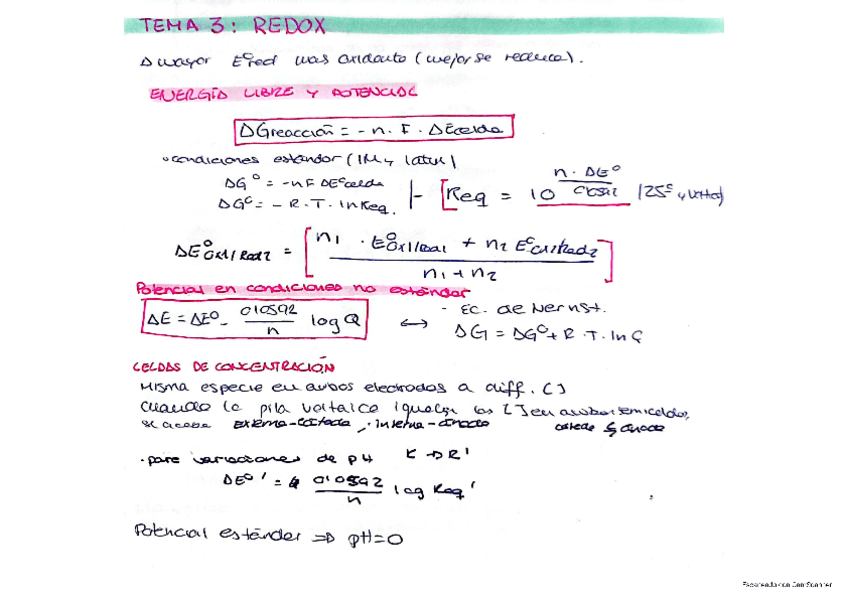 TEMA 3: REDOX
Δ mayor E°red mas oxidante (mejor se reduce).
ENERGÍA LIBRE Y POTENCIAL
ΔGreacción = -n. F. ΔEcelda
• condiciones estándar (1M y 1atm)
ΔG° = -nFΔE°celda
ΔG° = -R.T. lnKeq.
Keq = 10 n. ΔE° / 0'0592 (25° y voltios)
ΔE°ox1/Red2 = [ n1 . E°ox1/Red1 + n2 E°ox2/Red2 / n1 + n2 ]
Potencial en condiciones no estándar
ΔE = ΔE° - 0'0592 / n log Q ↔ - Ec. de Nernst.
ΔG = ΔG° + R.T. ln Q
CELDAS DE CONCENTRACIÓN
Misma especie en ambos electrodos a diff. [ ]
Cuando la pila voltaica iguala las [ ] en ambas semiceldas,
se acaba
externa-cátodo, interna-ánodo
cátodo ánodo
• para variaciones de pH K → K'
ΔE°' = 0'0592 / n log Keq'
Potencial estándar ⇒ pH=0
Escaneado con CamScanner